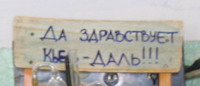 · ДА ЗДРАВСТВУЕТ
КЬЕ -ДАЛЬ!!!